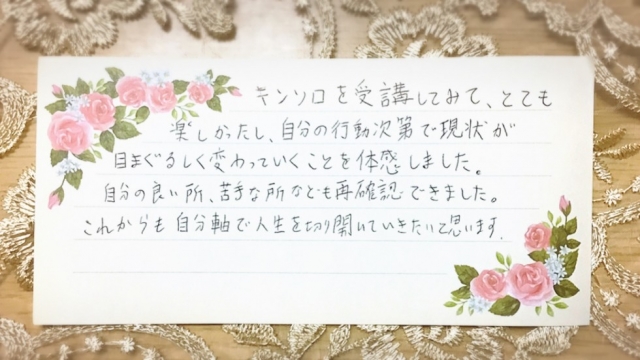 キンソロを受講してみて、とても
楽しかったし、自分の行動次第で現状が
目まぐるしく変わっていくことを体感しました。
自分の良い所、苦手な所なども再確認できました。
これからも自分軸で人生を切り開いていきたいと思います。